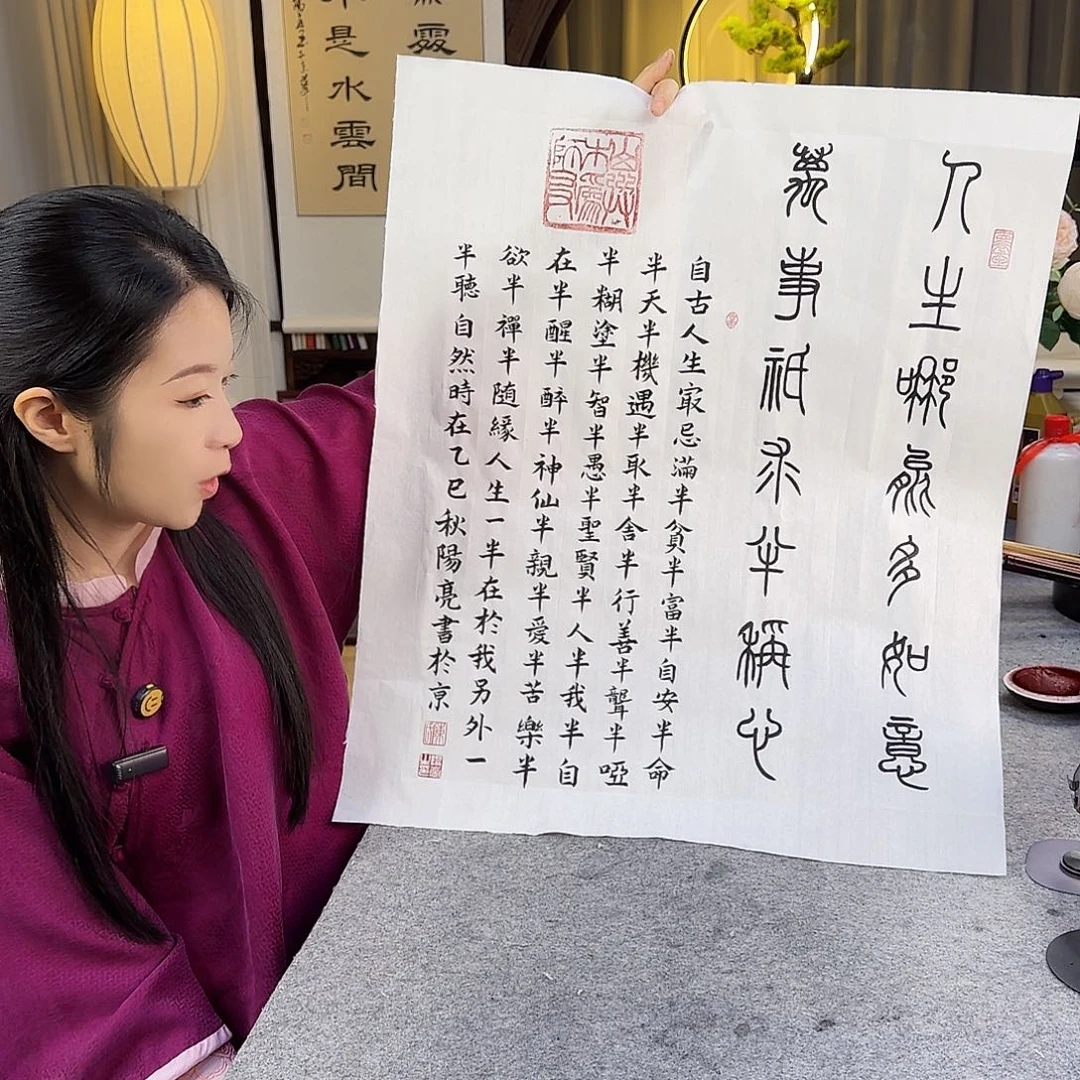 人生哪能多如意
萬事祇求半稱心
自古人生㝡忌滿半貧半富半自安半命
半天半機遇半取半舍半行善半聾半啞
半糊塗半智半愚半聖賢半人半我半自
在半醒半醉半神仙半親半愛半苦樂半
欲半禪半隨緣人生一半在於我另外一
半聽自然時在乙巳秋陽亮書於京
是水雲間